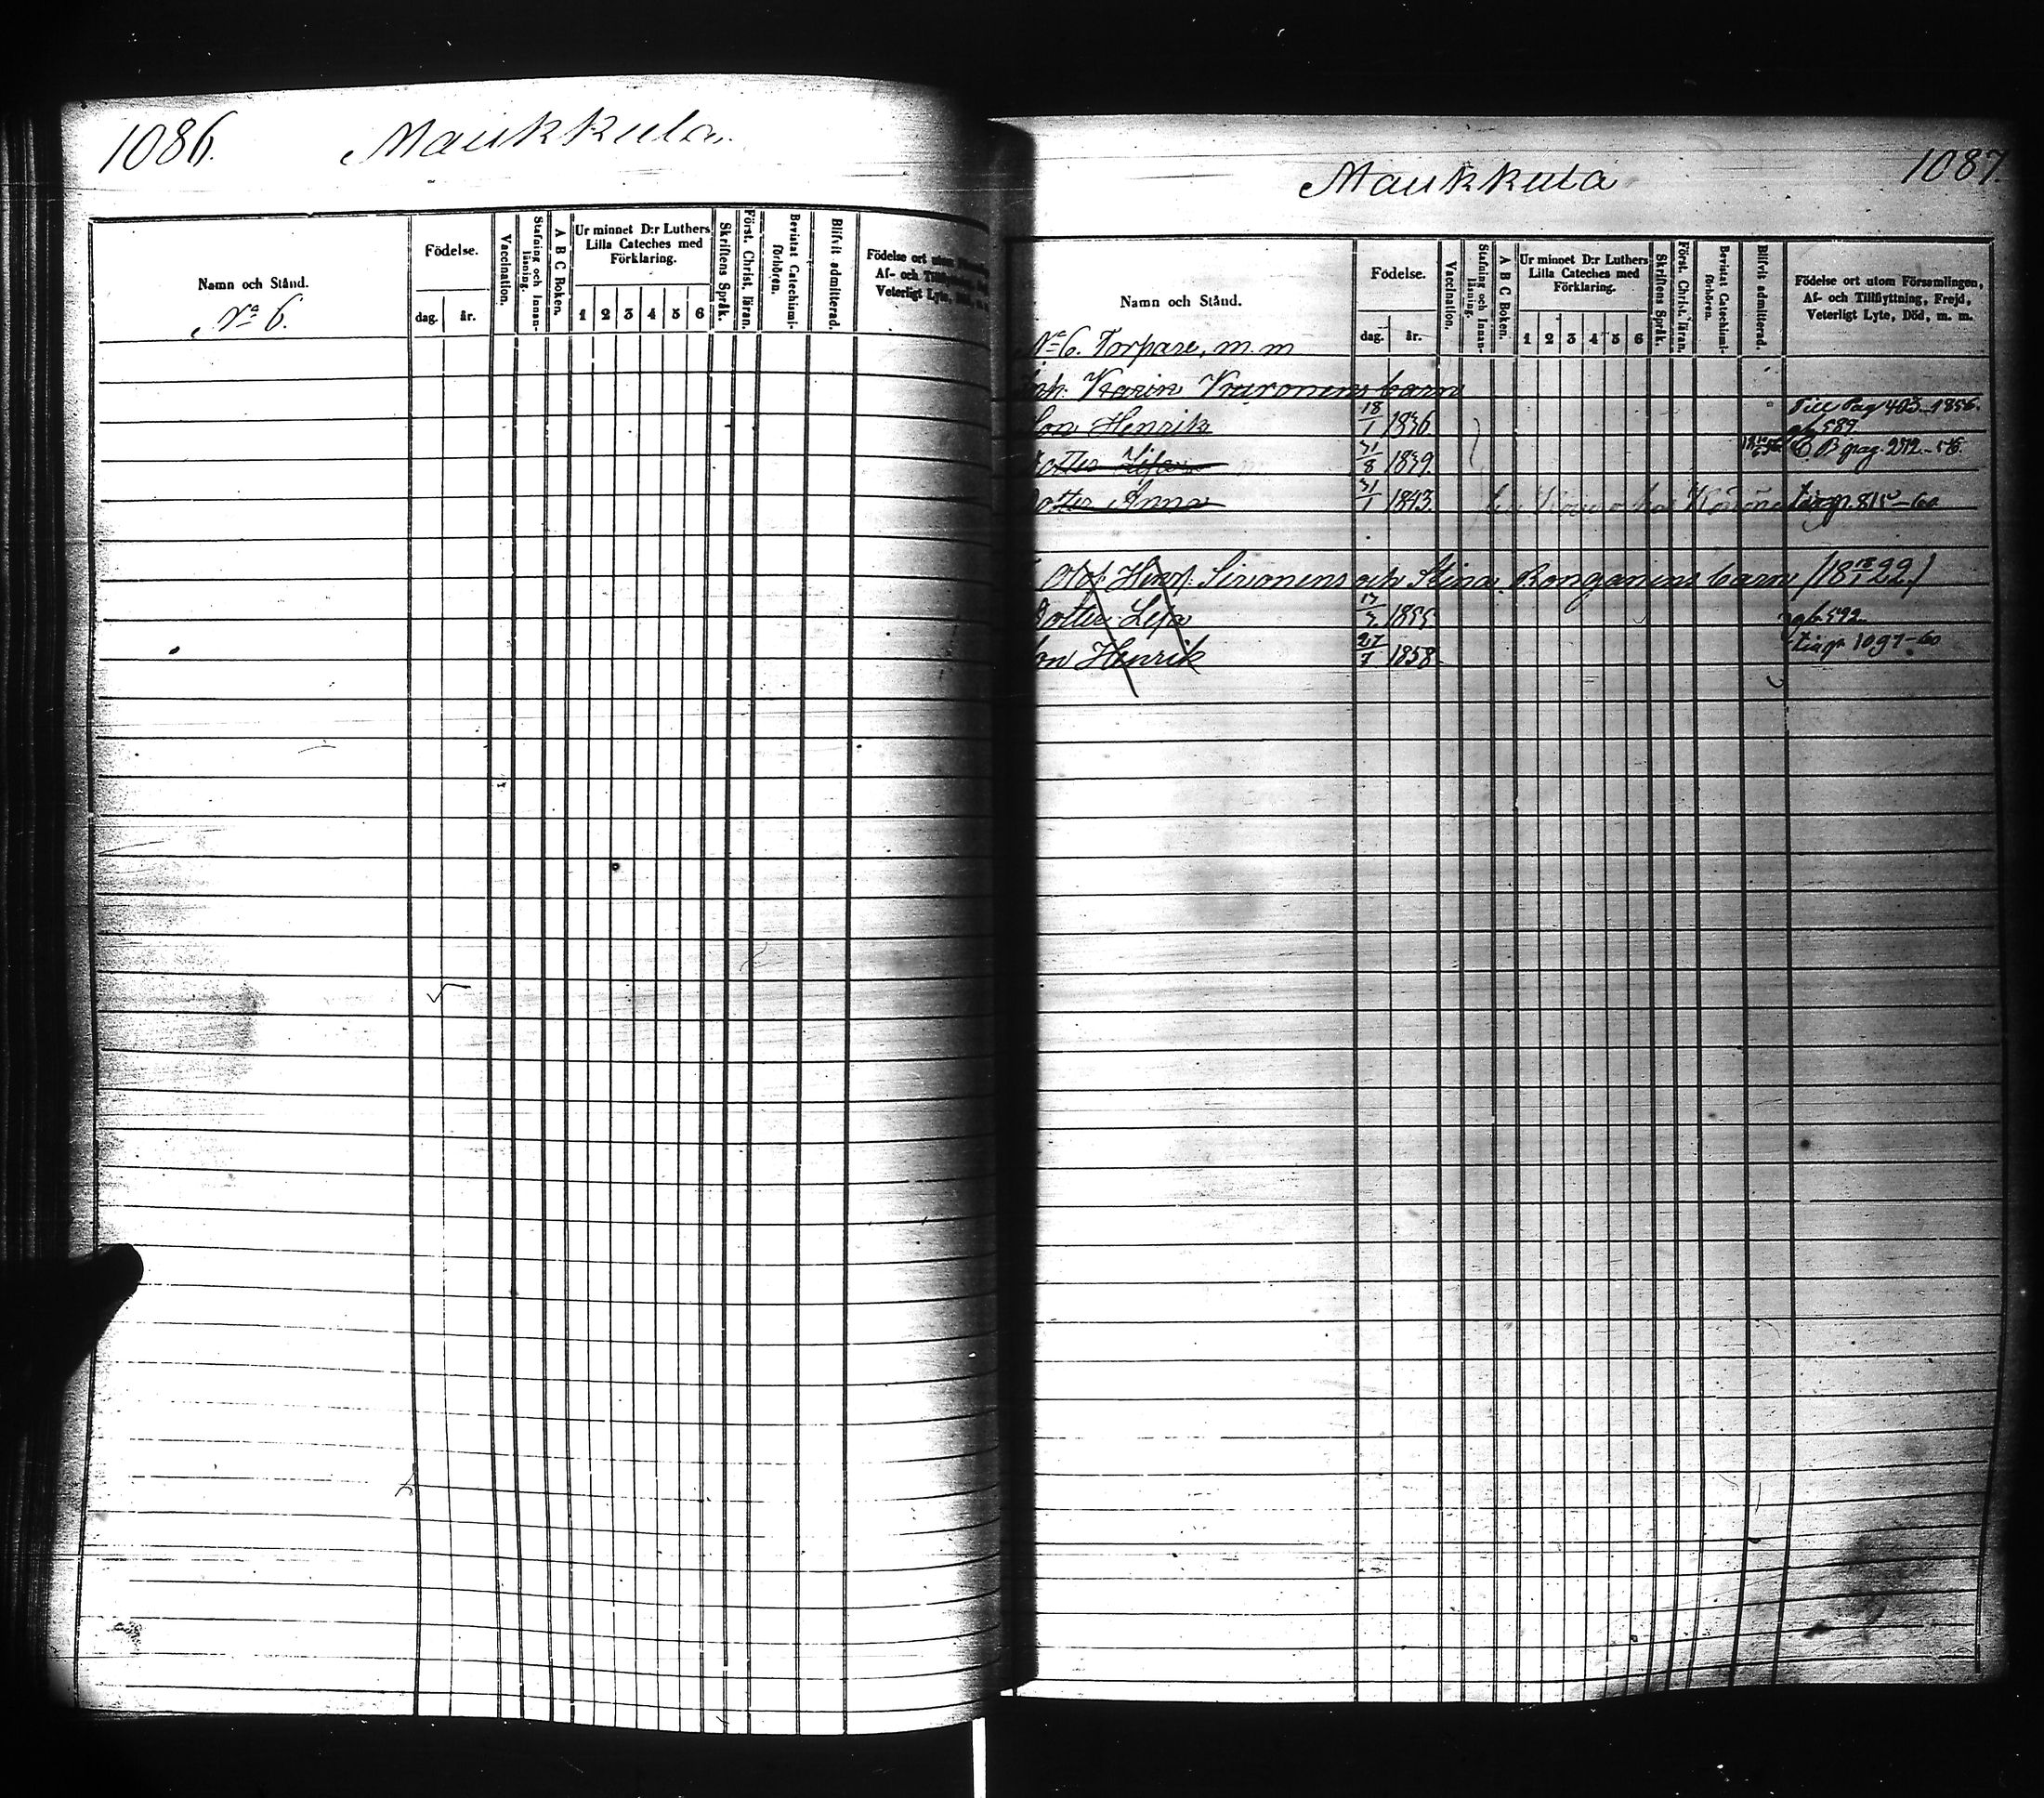 1086. Maukkula.
Namn och Stånd.
Nº 6.
Födelse.
dag. år.
Vaccination.
Stafning och Innanläsning.
A B C Boken.
Ur minnet D:r Luthers
Lilla Cateches med
Förklaring.
1 2 3 4 5 6
Skriftens Språk.
Först. Christ. läran.
Bevistat Catechismiförhören.
Blifvit admitterad.
Födelse ort utom
Af- och
Veterligt Lyte,
Maukkula 1087.
Namn och Stånd.
Nº 6. Torpare, m. m
Födelse.
dag. år.
Vaccination.
Stafning och Innanläsning.
A B C Boken.
Ur minnet D:r Luthers
Lilla Cateches med
Förklaring.
1 2 3 4 5 6
Skriftens Språk.
Först. Christ. läran.
Bevistat Catechismiförhören.
Blifvit admitterad.
Födelse ort utom Församlingen,
Af- och Tillflyttning, Frejd,
Veterligt Lyte, Död, m. m.
Inh. Karin barn
Son Henrik 18/1 1836. Till Pag 403 1856.
Dotter Lisa 31/8 1839. pag. 272-56.
Dotter Anna 31/1 1843. 815-60
Olof Sironens och Stina barn
Dotter Lisa 1855
Son Henrik 27/7 1858 1097-60